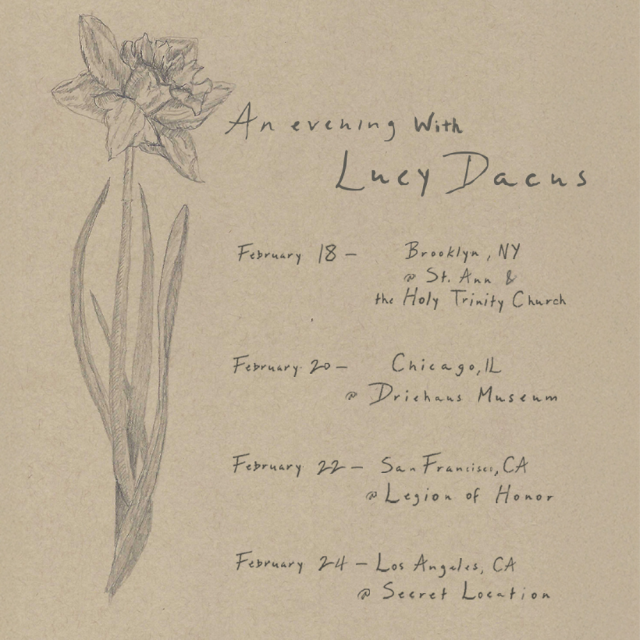 An evening With
Lucy Dacus
February 18 - Brooklyn, NY
@ St. Ann &
the Holy Trinity Church
February 20 - Chicago, IL
@ Driehaus Museum
February 22 - San Francisco, CA
@ Legion of Honor
February 24 - Los Angeles, CA
@ Secret Location